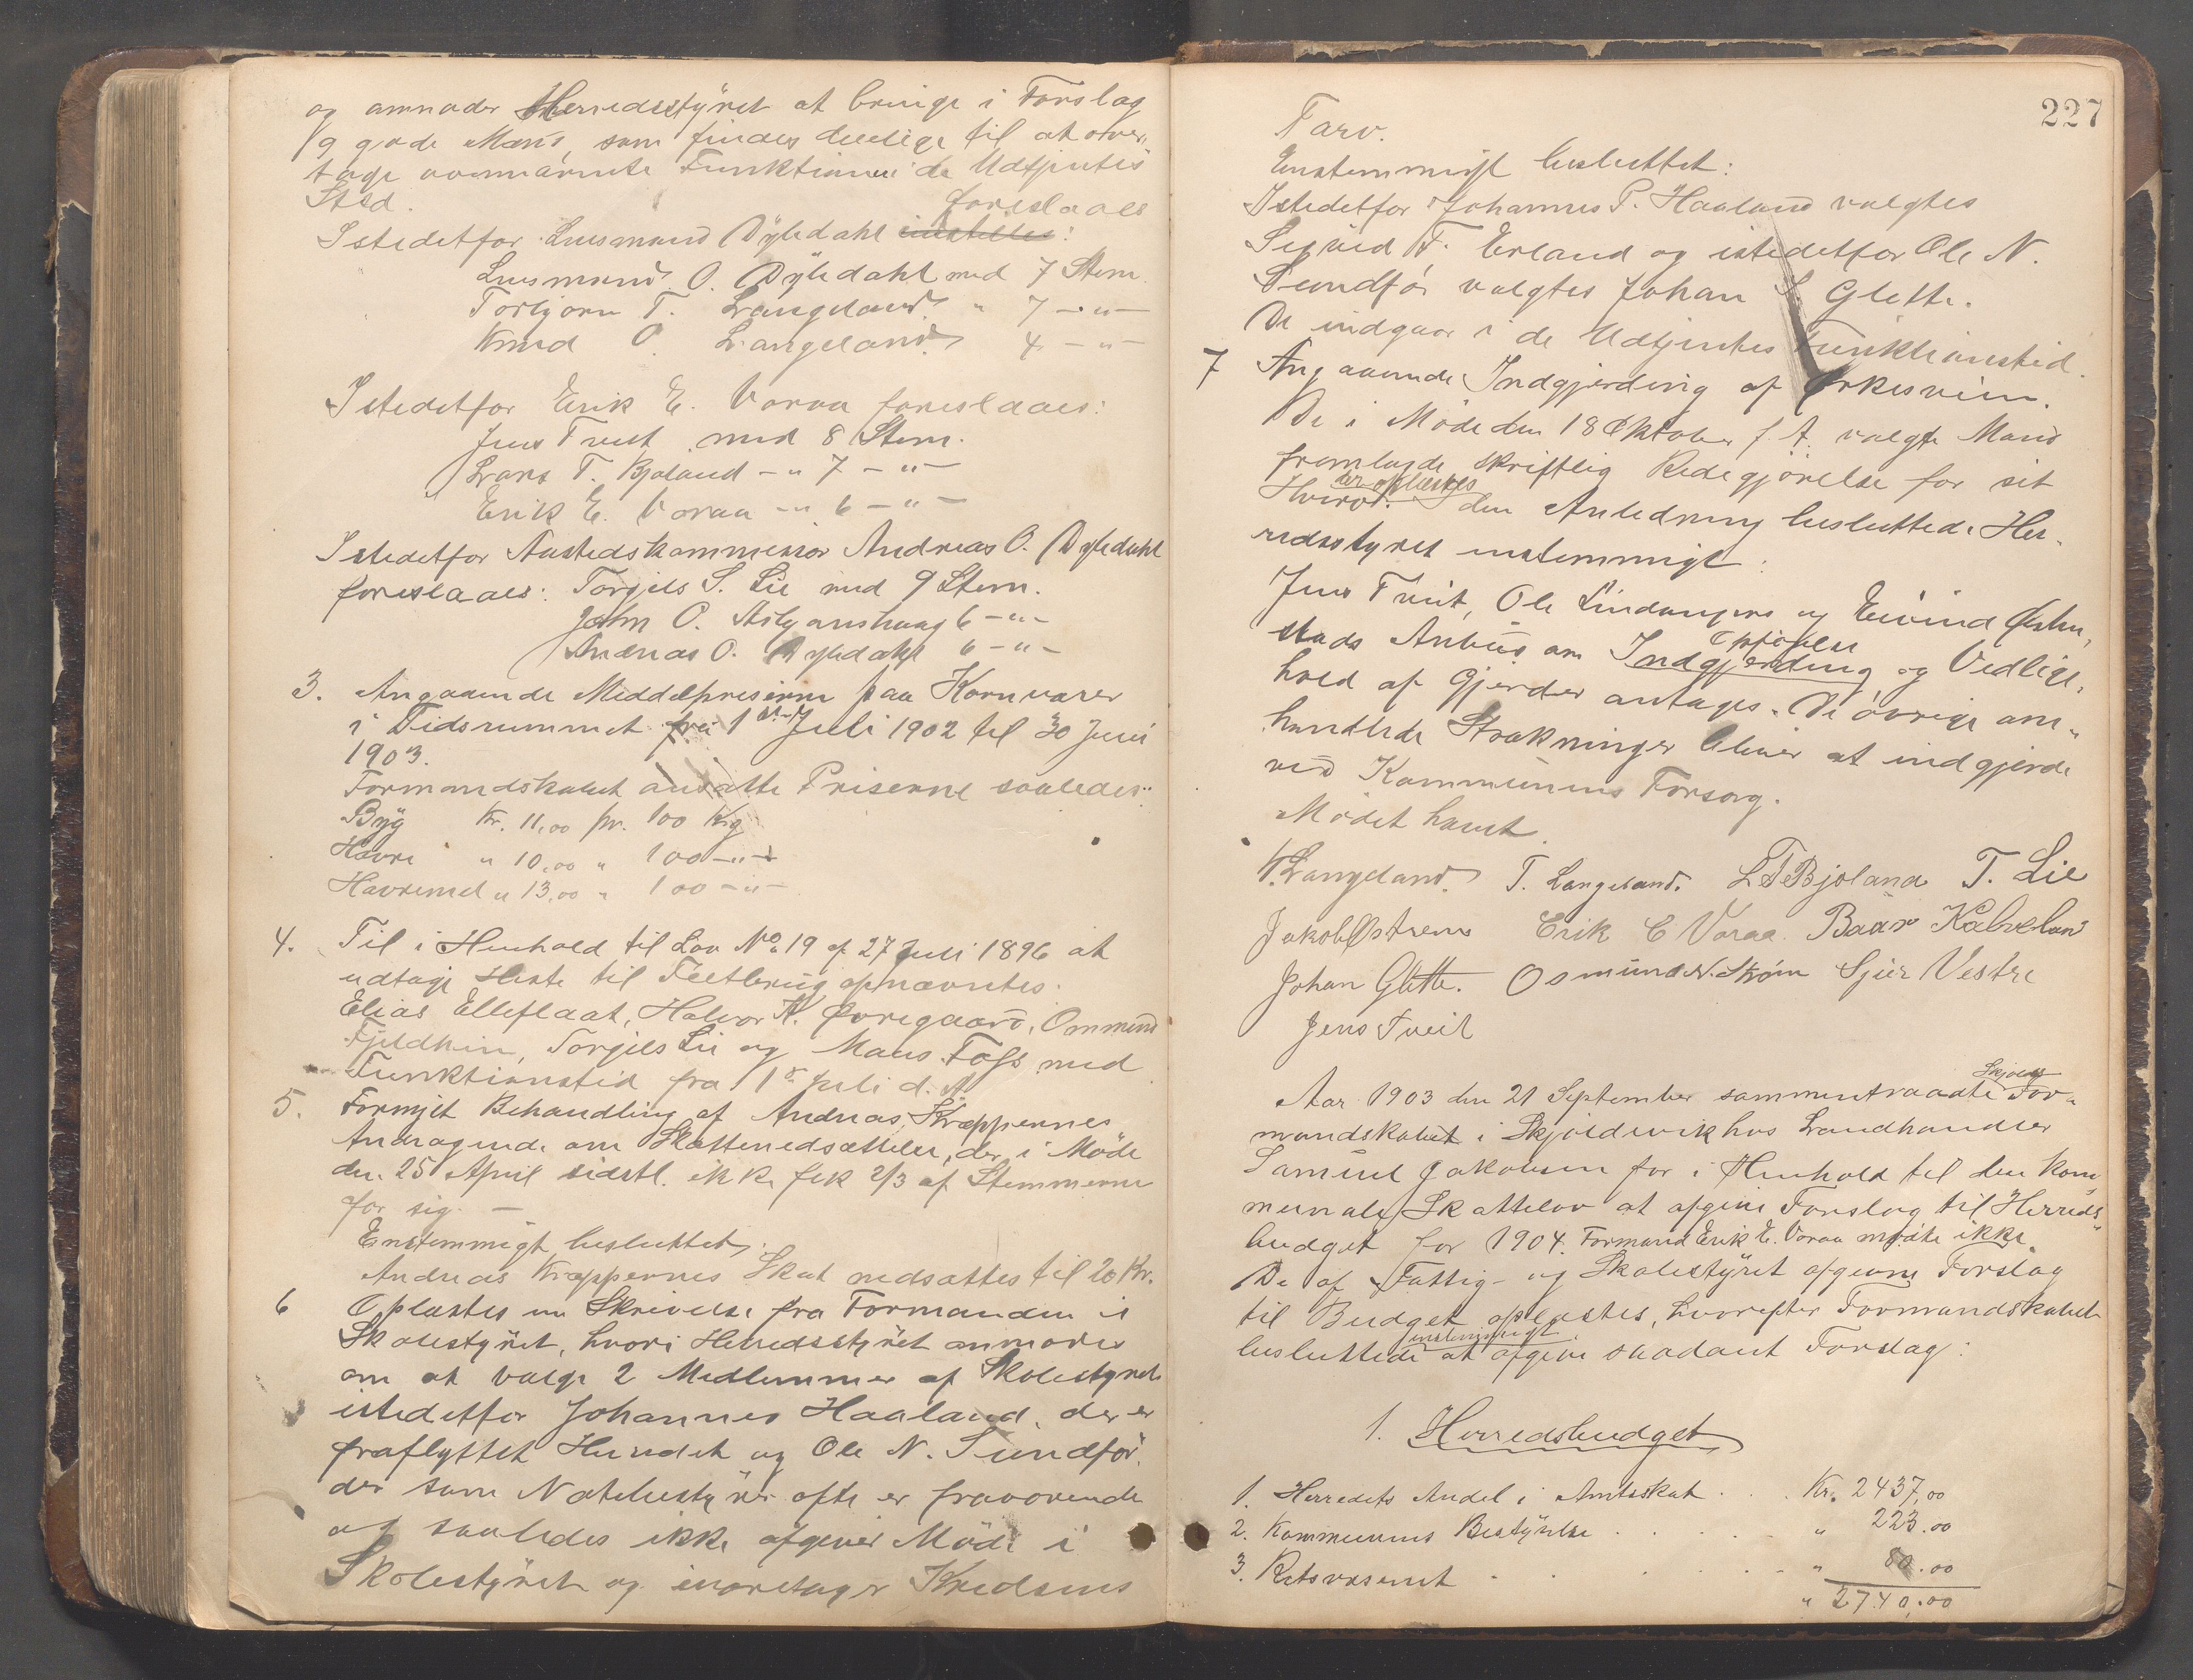 og anmoder Herredsstyret at bringe i Forslag
9 gode Mænd, som findes duelige til at over-
tage ovennævnte Funktioner i de Udtjentes
Sted.
foreslaaes
Istedetfor Lensmand Dyledahl indstilles:
Lensmand O. Dyledahl med 7 Stem.
Torbjørn T. Langeland " 7 - " -
Knud O. Langeland 4 - " -
Istedetfor Erik E. Voraa foreslaaes:
Jens Tveit med 8 Stem.
Lars T. Bjoland - " 7 - " -
Erik E. Voraa - " 6 - " -
Istedetfor Andreas O. Dyledahl
foreslaaes: Torgils S. Lie med 9 Stem.
John O. 6 - " -
Andreas O. Dyledahl 6 - " -
3. Angaaende Middelpriserne paa Kornvarer
i Tidsrummet fra 1ste Juli 1902 til 30 Juni
1903.
Formandskabet ansatte Priserne saaledes:
Byg Kr. 11,00 pr. 100 Kg
Havre " 10,00 " 100 - " -
Havremel " 13,00 " 100 - " -
4. Til i Henhold til Lov No 19 af 27 Juli 1896 at
udtage Heste til Feltbrug opnævntes:
Elias Elleflaat, Halvor K. Øvregaard, Ommund
Fjeldheim, Torgils Lie og Mans Foss med
Funktionstid fra 1ste Juli d. A.
5. Fornyet Behandling af Andreas Kræppernes
Andragende om Skattenedsættelse, der i Møde
den 25 April sidstl. ikke fik 2/3 af Stemmerne
for sig. -
Enstemmigt besluttet:
Andreas Kræppernes Skat nedsattes til 20 Kr.
6 Oplæstes en Skrivelse fra Formanden i
Skolestyret, hvori Herredsstyret anmodes
om at vælge 2 Medlemmer af Skolestyret
istedetfor Johannes Haaland, der er
fraflyttet Herredet og Ole N. Sundfør,
der som Notebestyrer ofte er fraværende
og saaledes ikke afgiver Møde i
Skolestyret og ivaretager Kredsens
227
Tarv.
Enstemmigt besluttet:
Istedetfor Johannes P. Haaland valgtes
Sigved T. Erland og istedetfor Ole N.
Sundfør valgtes Johan S. Glette.
De indgaar i de Udtjentes Funktionstid.
7 Angaaende Indgjerding af Ørkesveien.
De i Møde den 18 Oktober f. A. valgte Mænd
fremlagde skriftlig Redegjørelse for sit
der oplæstes
Hverv. I den Anledning besluttede Her-
redsstyret enstemmigt:
Jens Tveit, Ole Lindangers og Eivind Østen-
Opførelse
stads Anbud om Indgjerding og Vedlige-
hold af Gjerder antages. De øvrige om-
handlede Strækninger bliver at indgjerde
ved Kommunens Forsorg.
Mødet hævet.
K. Langeland. T. Langeland. L T Bjoland T. Lie
Jakob Østrem Erik E Voraa Baar Kalveland
Johan Glette. Osmund N. Strøm Sjur Vestre
Jens Tveit
Skjolds
Aar 1903 den 21 September sammentraadte For-
mandskabet i Skjoldevik hos Landhandler
Samuel Jakobsen for i Henhold til den kom-
munale Skattelov at afgive Forslag til Herreds-
budget for 1904. Formand Erik E. Voraa mødte ikke.
De af Fattig- og Skolestyret afgivne Forslag
til Budget oplæstes, hvorefter Formandskabet
enstemmigt
besluttede at afgive saadant Forslag:
1. Herredsbudget
1. Herredets Andel i Amtsskat . . Kr. 2437,00
2. Kommunens Bestyrelse . . . . " 223.00
3. Retsvæsenet . . . . . " 80.00
" 2740,00